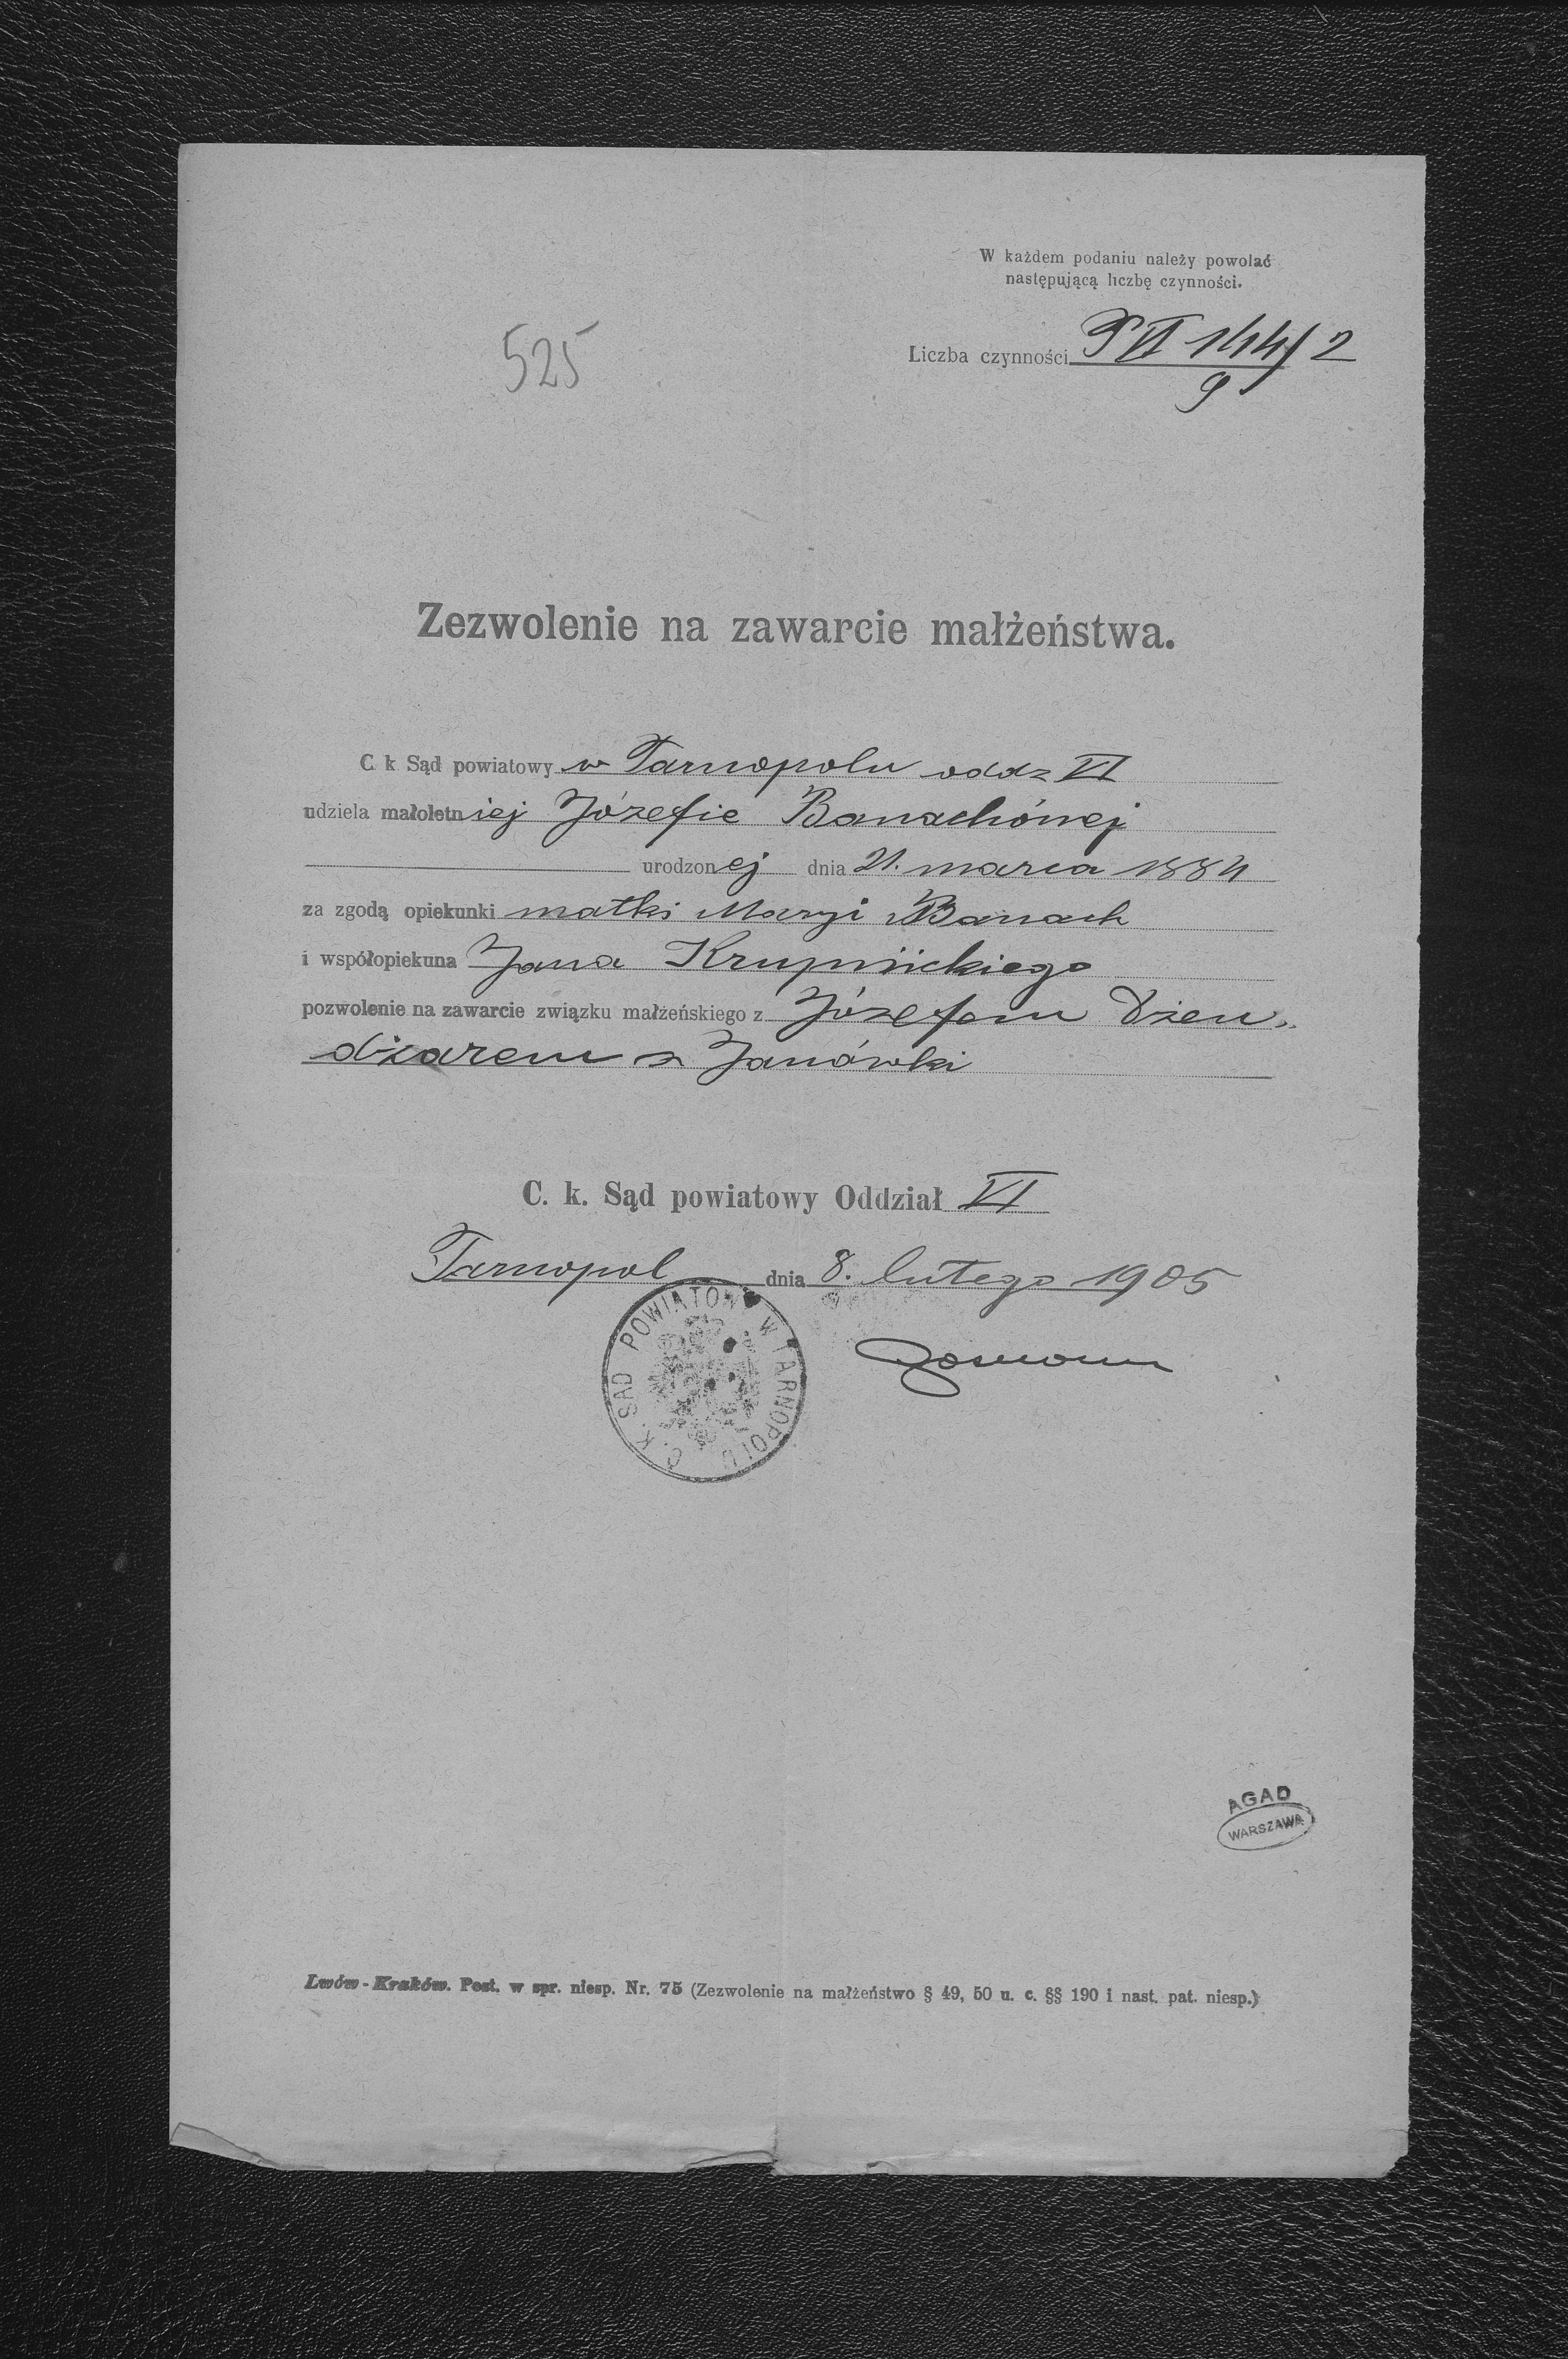 W każdem podaniu należy powołać
następującą liczbę czynności.
525
Liczba czynności P VI 144/2
9
Zezwolenie na zawarcie małżeństwa.
C. k Sąd powiatowy w Tarnopolu oddz VI
udziela małoletniej Józefie Banachównej
urodzonej dnia 21. marca 1884
za zgodą opiekunki matki Maryi Banach
i współopiekuna Jana Krupnickiego
pozwolenie na zawarcie związku małżeńskiego z Józefem Dżen„
dżarem z Janówki
C. k. Sąd powiatowy Oddział VI
Tarnopol dnia 8. lutego 1905
C. K. SĄD POWIATOWY W TARNOPOLU
AGAD
WARSZAWA
Lwów-Kraków. Post. w spr. niesp. Nr. 75 (Zezwolenie na małżeństwo § 49, 50 u. c. §§ 190 i nast. pat. niesp.)